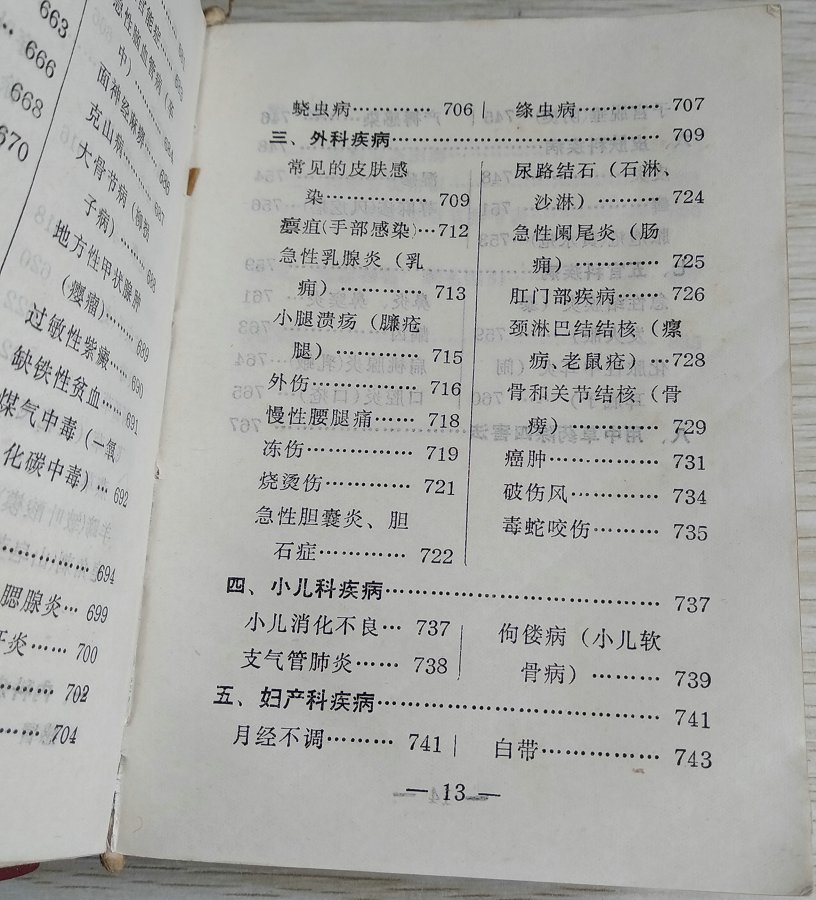 663
666
668
670
急性脑血管病（卒
中）
面神经麻痹
克山病
大骨节病（柳拐
子病）
地方性甲状腺肿
（瘿瘤）……… 689
过敏性紫癜…… 690
缺铁性贫血…… 691
煤气中毒（一氧
化碳中毒）… 692
694
腮腺炎… 699
肝炎…… 700
702
704
蛲虫病………… 706
绦虫病………… 707
三、外科疾病…………………………………… 709
常见的皮肤感
染…………… 709
瘭疽(手部感染)…712
急性乳腺炎（乳
痈）………… 713
小腿溃疡（臁疮
腿）………… 715
外伤…………… 716
慢性腰腿痛…… 718
冻伤…………… 719
烧烫伤………… 721
急性胆囊炎、胆
石症………… 722
尿路结石（石淋、
沙淋）……… 724
急性阑尾炎（肠
痈）………… 725
肛门部疾病…… 726
颈淋巴结结核（瘰
疬、老鼠疮）…728
骨和关节结核（骨
痨）………… 729
癌肿…………… 731
破伤风………… 734
毒蛇咬伤……… 735
四、小儿科疾病………………………………… 737
小儿消化不良… 737
支气管肺炎…… 738
佝偻病（小儿软
骨病）……… 739
五、妇产科疾病………………………………… 741
月经不调……… 741
白带…………… 743
— 13 —